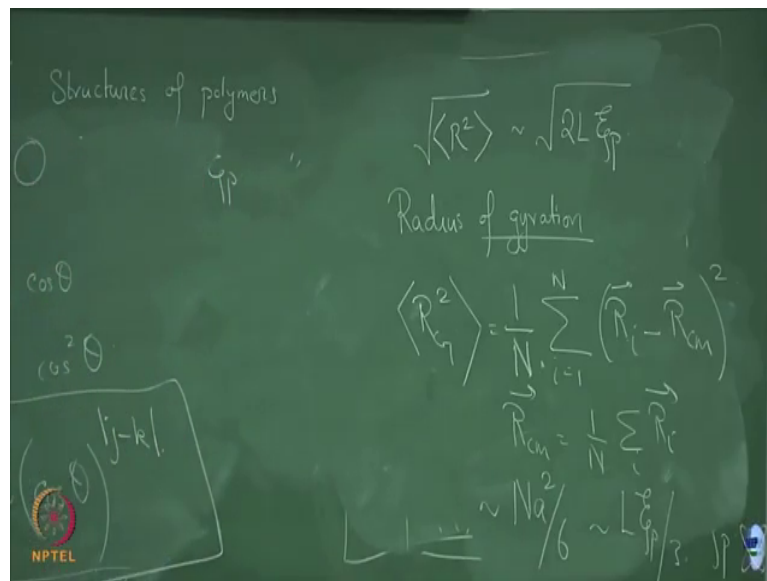 Structures of polymers
ξp "
cos θ
cos² θ
(cos θ)^|j-k|.
√⟨R²⟩ ~ √2Lξp
Radius of gyration
⟨R_G²⟩ = 1/N Σ_{i=1}^{N} (R⃗_i - R⃗_cm)²
R⃗_cm = 1/N Σ_i R⃗_i
~ Na²/6 ~ Lξp/3.
NPTEL